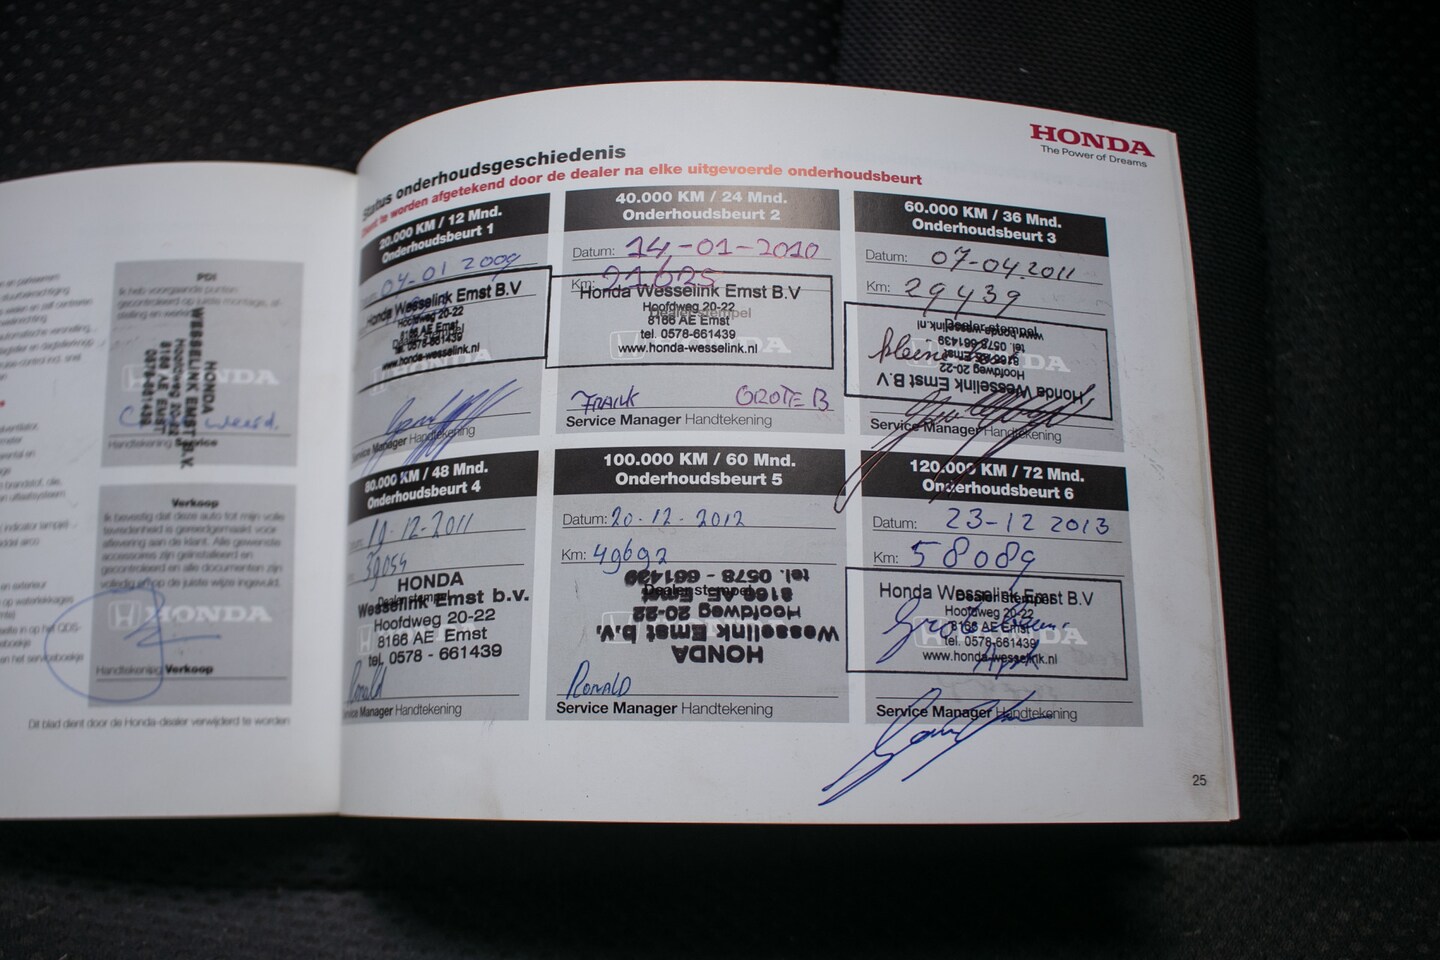 HONDA
The Power of Dreams
Status onderhoudsgeschiedenis
Dient te worden afgetekend door de dealer na elke uitgevoerde onderhoudsbeurt
20.000 KM / 12 Mnd.
Onderhoudsbeurt 1
04-01 2009
Honda Wesselink Emst B.V
Hoofdweg 20-22
8166 AE Emst
tel. 0578-661439
www.honda-wesselink.nl
Manager Handtekening
40.000 KM / 24 Mnd.
Onderhoudsbeurt 2
Datum: 14-01-2010
Km: 21625
Honda Wesselink Emst B.V
Hoofdweg 20-22
Dealerstempel
8166 AE Emst
tel. 0578-661439
www.honda-wesselink.nl
FRANK GROTE B
Service Manager Handtekening
60.000 KM / 36 Mnd.
Onderhoudsbeurt 3
Datum: 07-04.2011
Km: 29439
Dealerstempel
kleine
Honda Wesselink Emst B.V
Hoofdweg 20-22
8166 AE Emst
tel. 0578-661439
www.honda-wesselink.nl
Service Manager Handtekening
80.000 KM / 48 Mnd.
Onderhoudsbeurt 4
19-12-2011
39054
HONDA
Dealerstempel
Wesselink Emst b.v.
Hoofdweg 20-22
8166 AE Emst
tel. 0578 - 661439
Ronald
Service Manager Handtekening
100.000 KM / 60 Mnd.
Onderhoudsbeurt 5
Datum: 20-12-2012
Km: 49692
Dealerstempel
HONDA
Wesselink Emst b.v.
Hoofdweg 20-22
8166 AE Emst
tel. 0578 - 661439
RONALD
Service Manager Handtekening
120.000 KM / 72 Mnd.
Onderhoudsbeurt 6
Datum: 23-12 2013
Km: 58089
Honda Wesselink Emst B.V
Dealerstempel
Hoofdweg 20-22
8166 AE Emst
tel. 0578-661439
www.honda-wesselink.nl
Service Manager Handtekening
25
PDI
Ik heb voorgaande punten
gecontroleerd op juiste montage, af-
stelling en werking.
HONDA
WESSELINK EMST B.V.
Hoofdweg 20-22
8166 AE EMST
0578-661439
Handtekening Service
Verkoop
Ik bevestig dat deze auto tot mijn volle
tevredenheid is gereedgemaakt voor
aflevering aan de klant. Alle gewenste
accessoires zijn geïnstalleerd en
alle documenten zijn
volledig en op de juiste wijze ingevuld.
HONDA
Handtekening Verkoop
Dit blad dient door de Honda-dealer verwijderd te worden